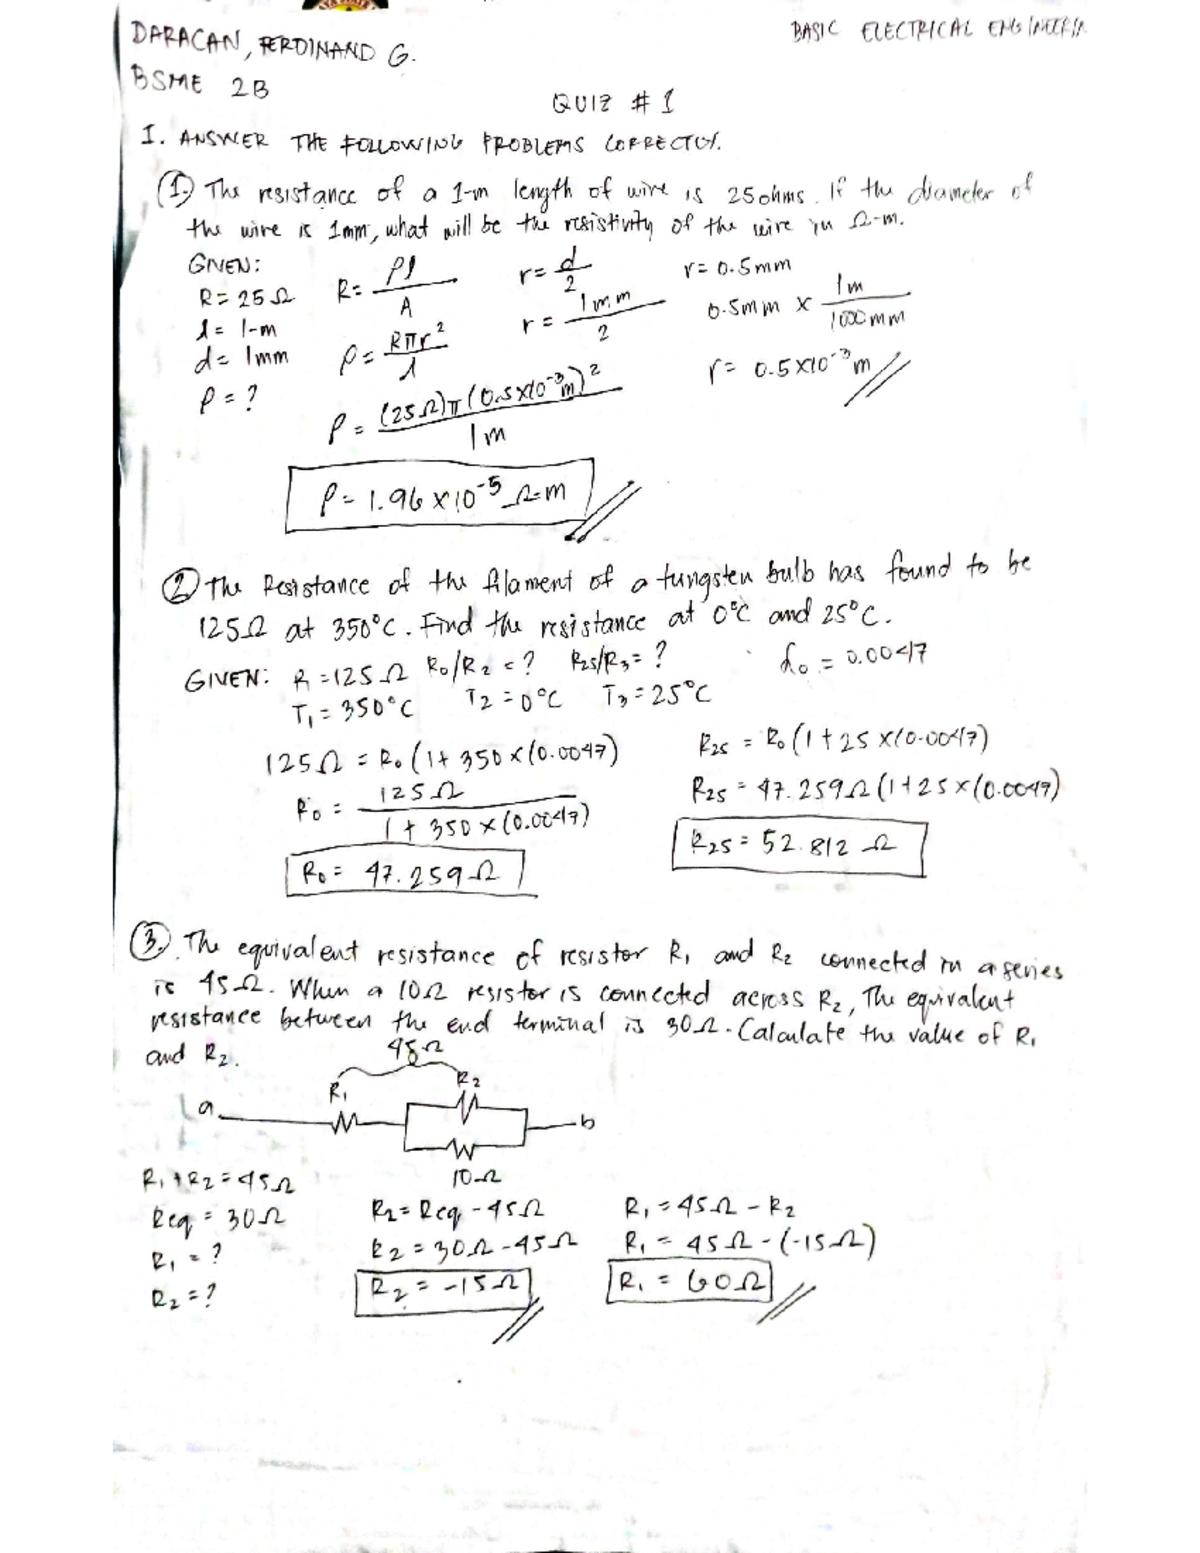 DARACAN, FERDINAND G.
BASIC ELECTRICAL ENGINEERIN
BSME 2B
QUIZ # 1
I. ANSWER THE FOLLOWING PROBLEMS CORRECTLY.
1. The resistance of a 1-m length of wire is 25 ohms. If the diameter of
the wire is 1mm, what will be the resistivity of the wire in Ω-m.
GIVEN:
R = 25 Ω
l = 1-m
d = 1mm
ρ = ?
R = ρl / A
ρ = Rπr² / l
ρ = (25Ω)π(0.5x10⁻³m)² / 1m
ρ = 1.96 x 10⁻⁵ Ω-m
r = d / 2
r = 1mm / 2
r = 0.5mm
0.5mm x 1m / 1000mm
r = 0.5x10⁻³m
2 The Resistance of the filament of a tungsten bulb has found to be
125Ω at 350°C. Find the resistance at 0°C and 25°C.
GIVEN: R = 125Ω R₀/R₂ = ? R₂₅/R₃ = ?
T₁ = 350°C T₂ = 0°C T₃ = 25°C
₀ = 0.0047
125Ω = R₀(1 + 350 x (0.0047)
R₀ = 125Ω / 1 + 350 x (0.0047)
R₀ = 47.259Ω
R₂₅ = R₀(1 + 25 x (0.0047)
R₂₅ = 47.259Ω(1 + 25 x (0.0047)
R₂₅ = 52.812 Ω
3. The equivalent resistance of resistor R₁ and R₂ connected in a series
is 45Ω. When a 10Ω resistor is connected across R₂, The equivalent
resistance between the end terminal is 30Ω. Calculate the value of R₁
and R₂.
45Ω
R₁
R₂
a
b
10Ω
R₁ + R₂ = 45Ω
Req = 30Ω
R₁ = ?
R₂ = ?
R₂ = Req - 45Ω
R₂ = 30Ω - 45Ω
R₂ = -15Ω
R₁ = 45Ω - R₂
R₁ = 45Ω - (-15Ω)
R₁ = 60Ω